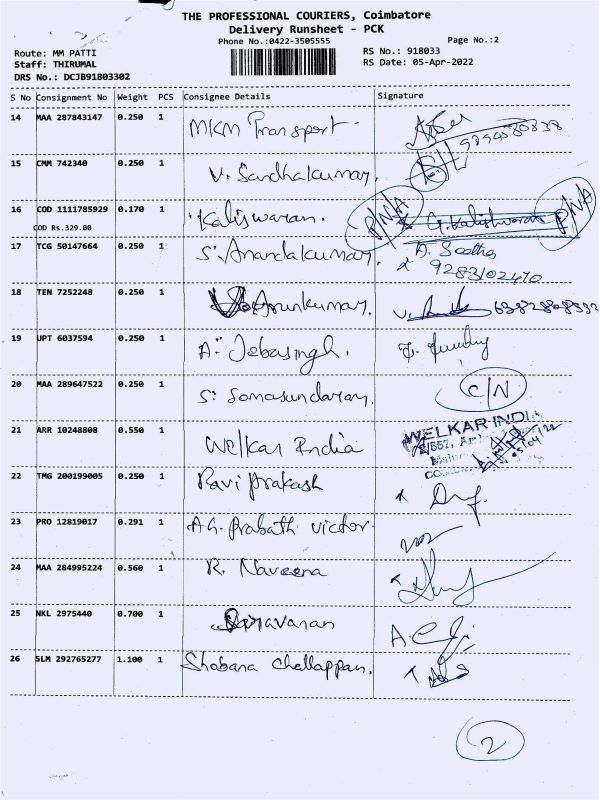 THE PROFESSIONAL COURIERS, Coimbatore
Delivery Runsheet - PCK
Phone No.:0422-3505555
Page No.:2
Route: MM PATTI
Staff: THIRUMAL
DRS No.: DCJB91803302
RS No.: 918033
RS Date: 05-Apr-2022
S No Consignment No Weight PCS Consignee Details Signature
14 MAA 287843147 0.250 1 MKM Transport
15 CMM 742340 0.250 1 V. Sandhakumar.
16 COD 1111785929 0.170 1 Kaliswaran. P/N/A G.Kalishwaran P/N/A
COD Rs.329.00
17 TCG 50147664 0.250 1 S. Anandakumar, A. Seetha
9283102470
18 TEN 7252248 0.250 1 Arunkumar.
19 UPT 6037594 0.250 1 A. Jebasingh.
20 MAA 289647522 0.250 1 S. Somasundaram. C/N
21 ARR 10248808 0.550 1 Welkar India WELKAR INDI
22 TMG 200199005 0.250 1 Ravi Prakash
23 PRO 12819017 0.291 1 A.G. Prabath Victor
24 MAA 284995224 0.560 1 R. Naveena
25 NKL 2975440 0.700 1 Saravanan
26 SLM 292765277 1.100 1 Shabana Chellappan.
2